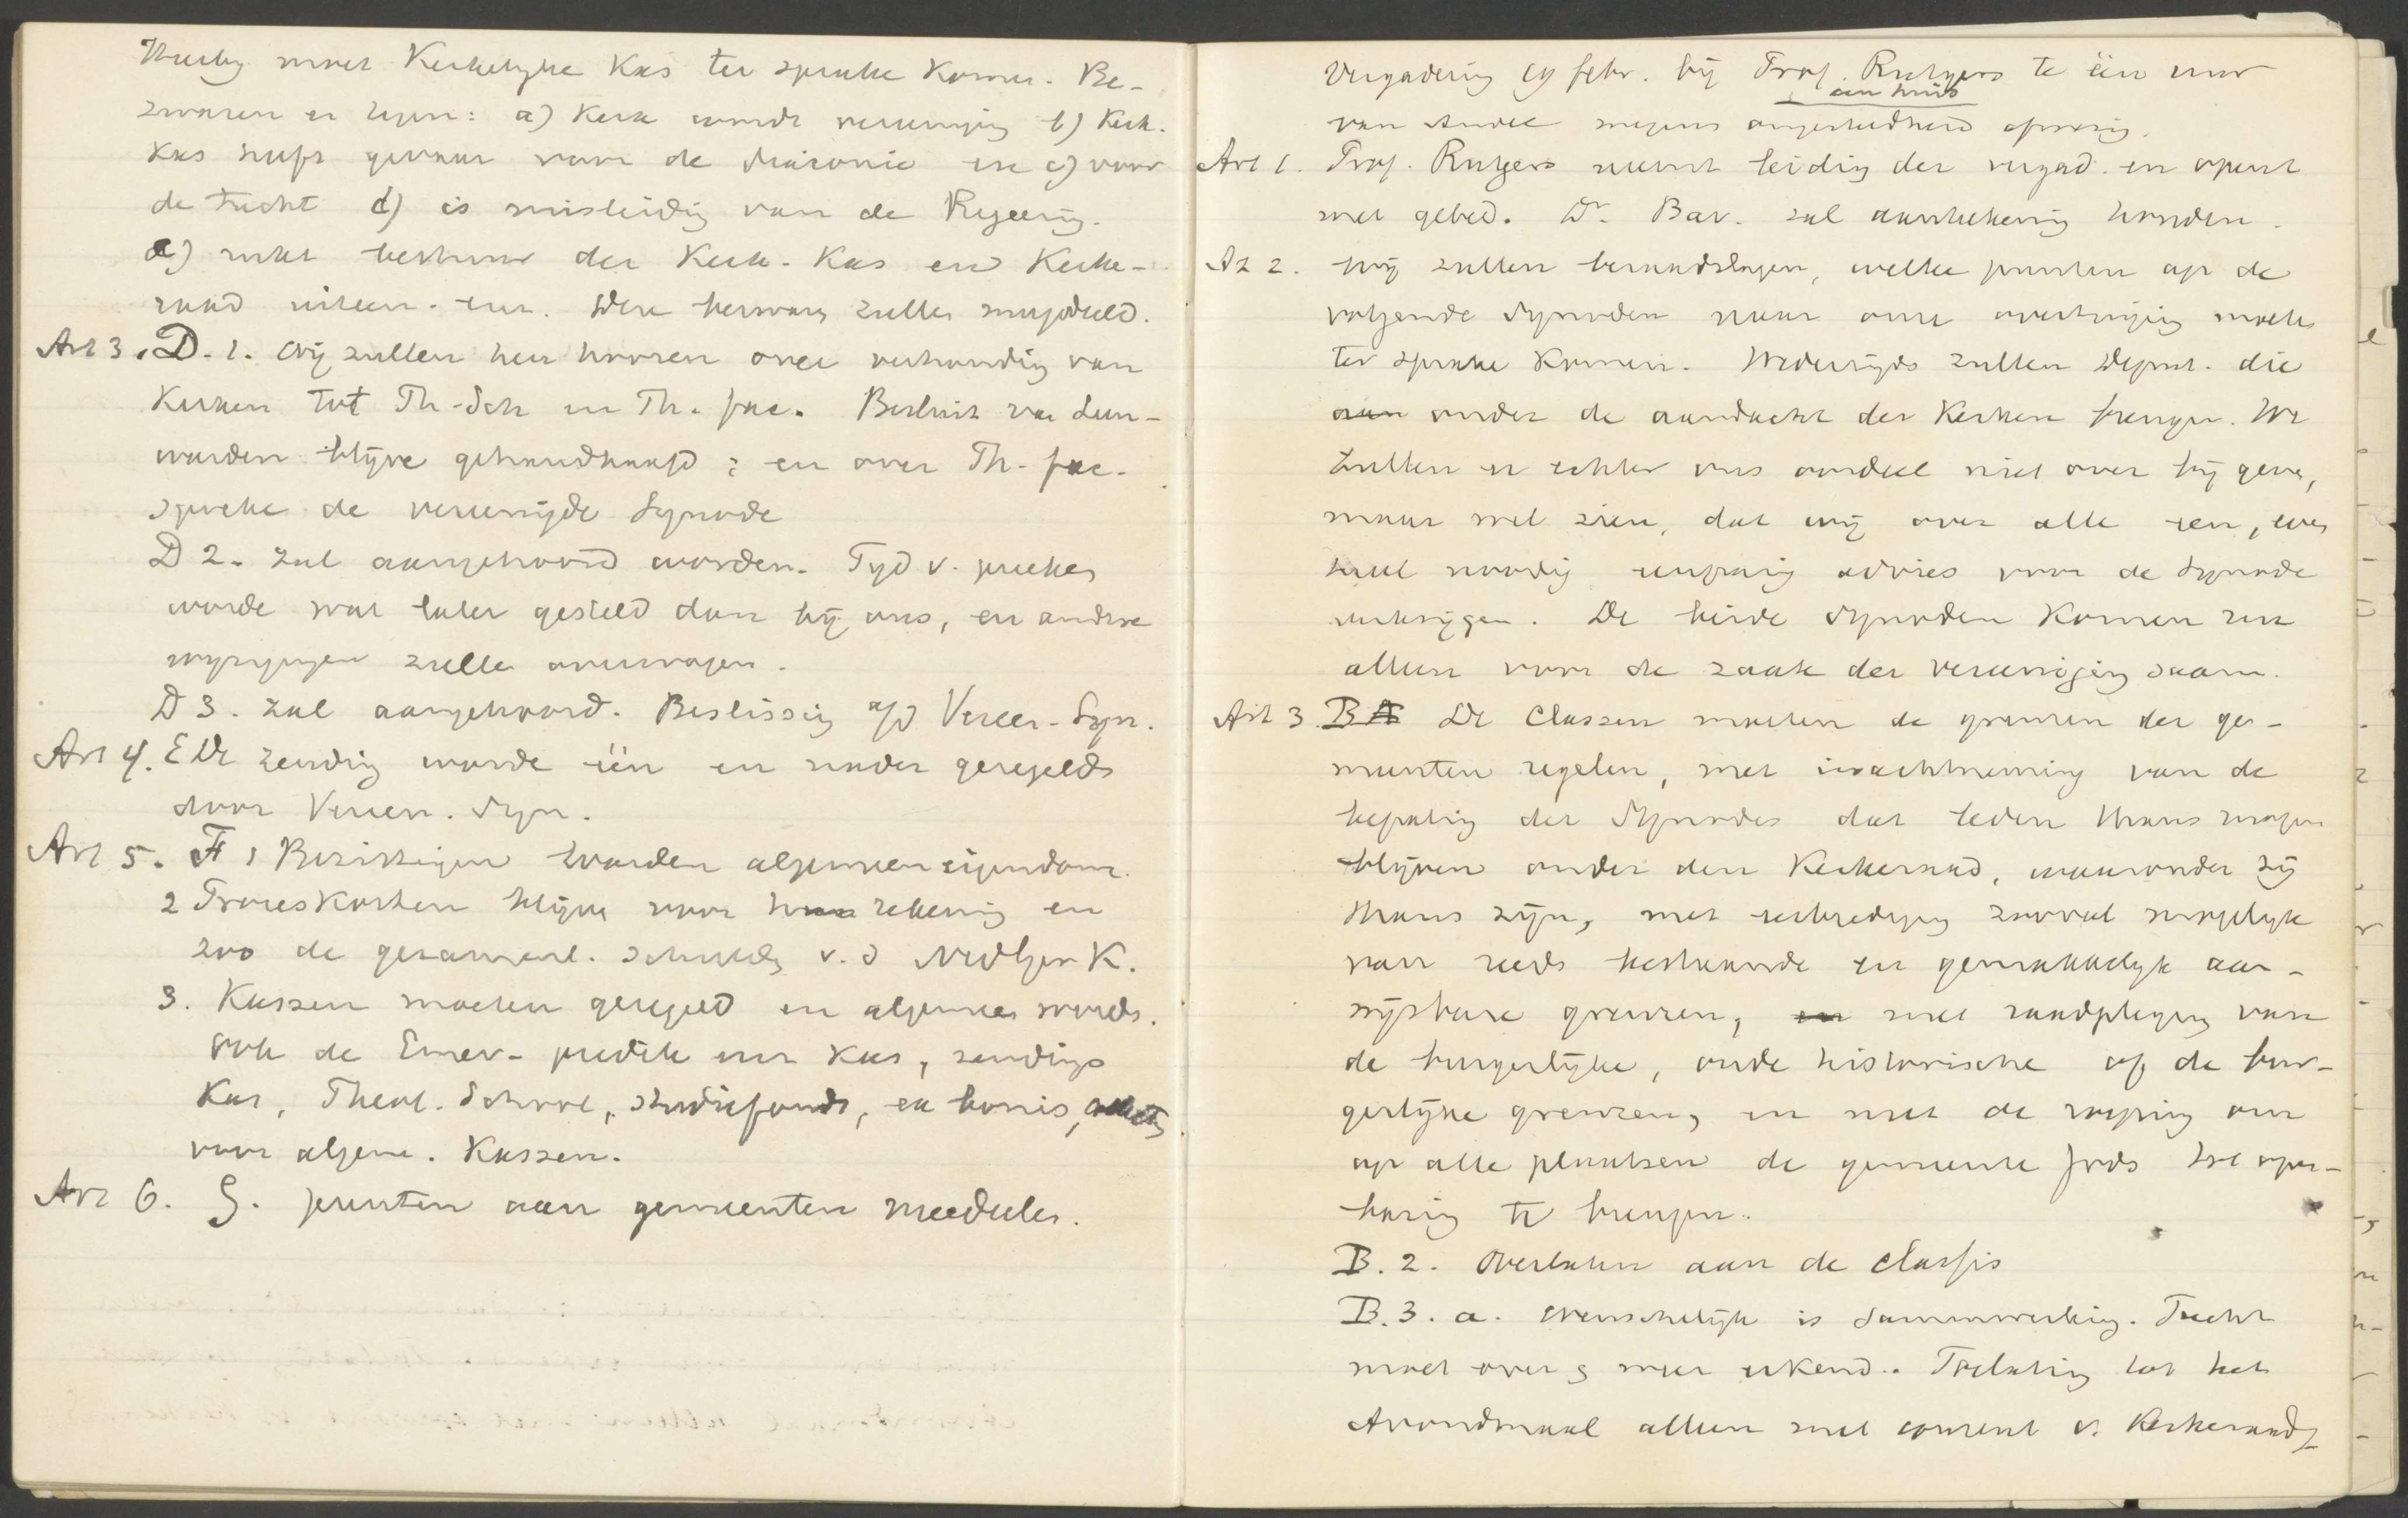 Hierbij moet Kerkelijke Kas ter sprake komen. Be-
zwaren er tegen: a) Kerk wordt vereeniging b) Kerk.
Kas heeft gevaar voor de diaconie en c) voor
de tucht d) is misleidig van de Regeering.
e) rukt bestuur der Kerk. Kas en Kerke-
raad uiteen. enz. Deze bezwaren zullen meegedeeld.
Art 3. D. 1. Wij zullen hen hooren over verhouding van
Kerken tot Th. Sch en Th. fac. Besluit van Leeu-
warden blijve gehandhaafd; en over Th. fac.
spreke de vereenigde Synode
D 2. zal aangehoord worden. Tijd v. preeken
worde wat later gesteld dan bij ons, en andere
wijzigingen zullen overwogen.
D 3. zal aangehoord. Beslissing a/d Vereen. Syn.
Art 4. E De zending worde één en nader geregeld
door Vereen. Syn.
Art 5. F 1 Bezittingen worden algemeen eigendom.
2 Proceskosten blijve voor rekening en
zoo de gezamenl. schulden v. d Nedger K.
3. Kassen moeten geregeld en algemeen worden.
ook de Emer. predik en Kas, zendings
Kas, Theol. School, studiefonds, en bonis,
voor algem. Kassen.
Art 6. G. punten aan gemeenten meedeelen.
Vergadering 19 febr. bij Prof. Rutgers te één uur
aan huis
van Andel wegens ongesteldheid afwezig.
Art 1. Prof. Rutgers neemt leiding der vergad. en opent
met gebed. Dr. Bav. zal aanteekening houden.
Art 2. Wij zullen beraadslagen, welke punten op de
volgende Synoden naar onze overtuiging moeten
ter sprake komen. Wederzijds zullen Deput. die
aan onder de aandacht der Kerken brengen. We
zullen er echter ons oordeel niet over bij geven,
maar wel zien, dat wij over alle een, even-
tueel noodig eenparig advies voor de Synode
verkrijgen. De beide Synoden komen
alleen voor de zaak der vereeniging saam.
Art 3. B De Classen moeten de grenzen der ge-
meenten regelen, met inachtneming van de
bepaling der Synodes dat leden thans mogen
blijven onder den Kerkeraad, waaronder zij
thans zijn, met eerbiediging zooveel mogelijk
van reeds bestaande en gemakkelijk aan-
wijsbare grenzen, en met raadpleging van
de burgerlijke, oude historische of de bur-
gerlijke grenzen, en met de roeping om
op alle plaatsen de gemeente Gods tot open-
baring te brengen.
B. 2. Overlaten aan de classis
B. 3. a. Wenschelijk is samenwerking. Tucht
moet over en weer erkend. Toelating tot het
Avondmaal alleen met consent v. Kerkeraad,